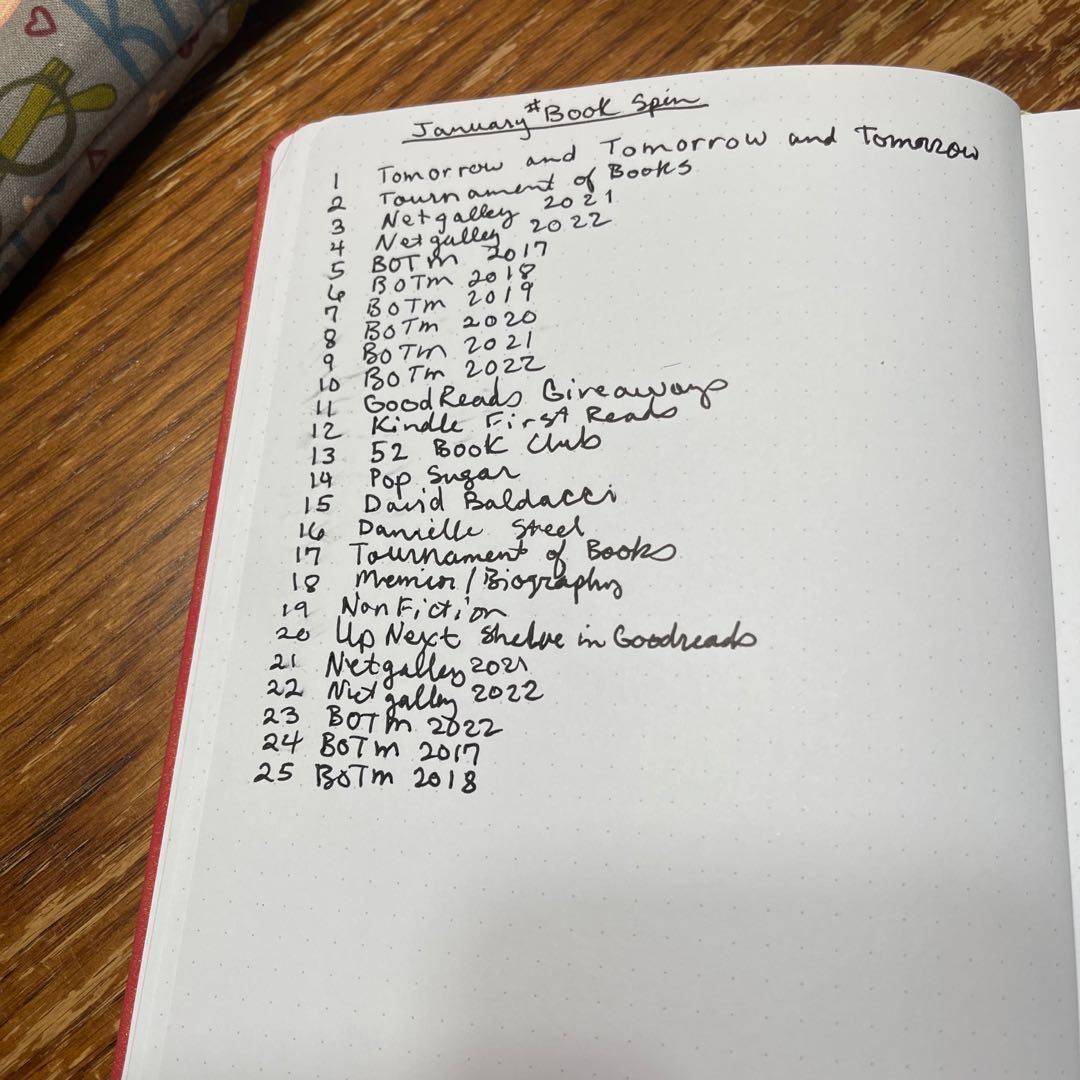 January #Book Spin
1 Tomorrow and Tomorrow and Tomorrow
2 Tournament of Books
3 Netgalley 2021
4 Netgalley 2022
5 BOTM 2017
6 BOTM 2018
7 BOTM 2019
8 BOTM 2020
9 BOTM 2021
10 BOTM 2022
11 GoodReads Giveaways
12 Kindle First Reads
13 52 Book Club
14 Pop Sugar
15 David Baldacci
16 Danielle Steel
17 Tournament of Books
18 Memior/Biography
19 NonFiction
20 Up Next Shelve in Goodreads
21 Netgalley 2021
22 Netgalley 2022
23 BOTM 2022
24 BOTM 2017
25 BOTM 2018